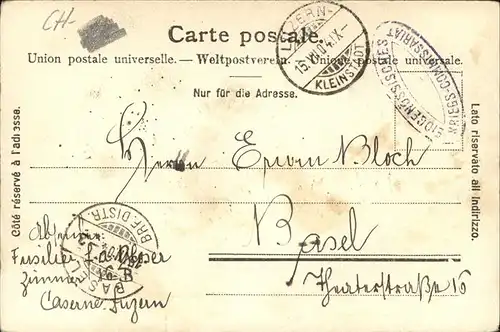 CH-
Carte postale.
Union postale universelle. — Weltpostverein. — Unione postale universale.
Nur für die Adresse.
LUZERN
KLEINSTADT
EIDGENÖSSISCHES
KRIEGS-COMMISSARIAT
Côté réservé à l'adresse.
Lato riservato all indirizzo.
Herrn Erwin Bloch
Basel
Theaterstraße 16
BASEL
BRF. DISTR.
Absender
Füsilier
Zimmer
Caserne Luzern